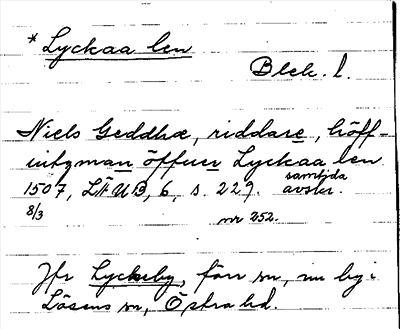 * Lyckaa len
Blek. l.
Niels Geddhæ, riddare, höff-
uitzman öffuer Lyckaa len
1507, LFUB, 6, s. 229. samtida avskr.
8/3 nr 252.
Jfr Lyckeby, förr sn, nu by i
Lösens sn, Östra hd.